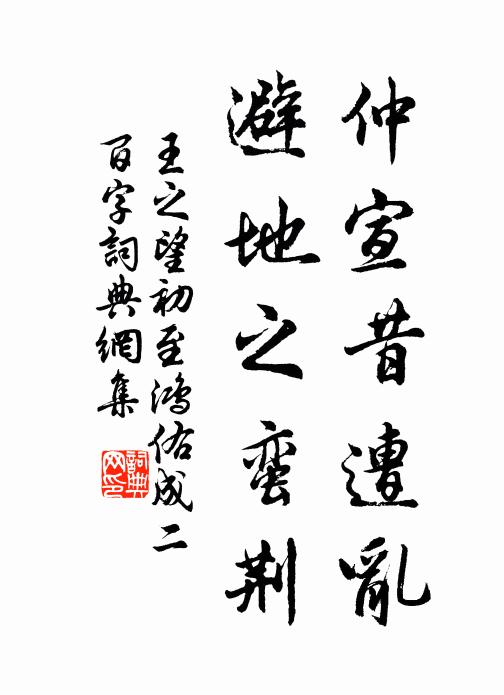 仲宣昔遭亂
避地之蛮荆
王之望初至鴻佑成二
百字詞典網集
詞典
网印